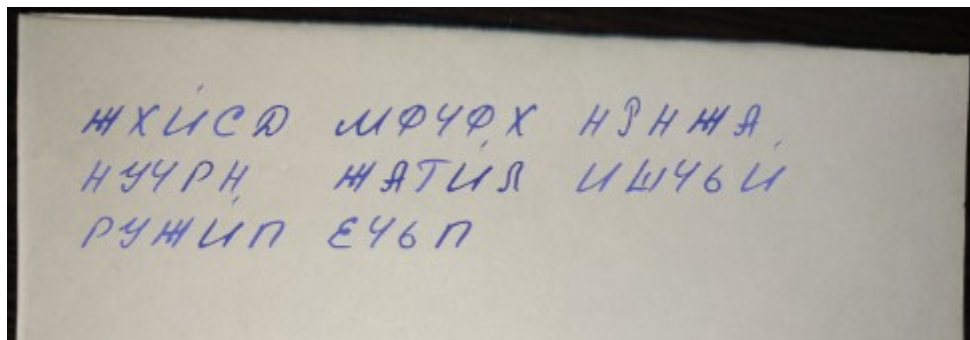 ЖХЙСД МФЧФХ НЗНЖА
НУЧРН ЖАТЙЛ ИШЧЬЙ
РУЖЙП ЕЧЬП